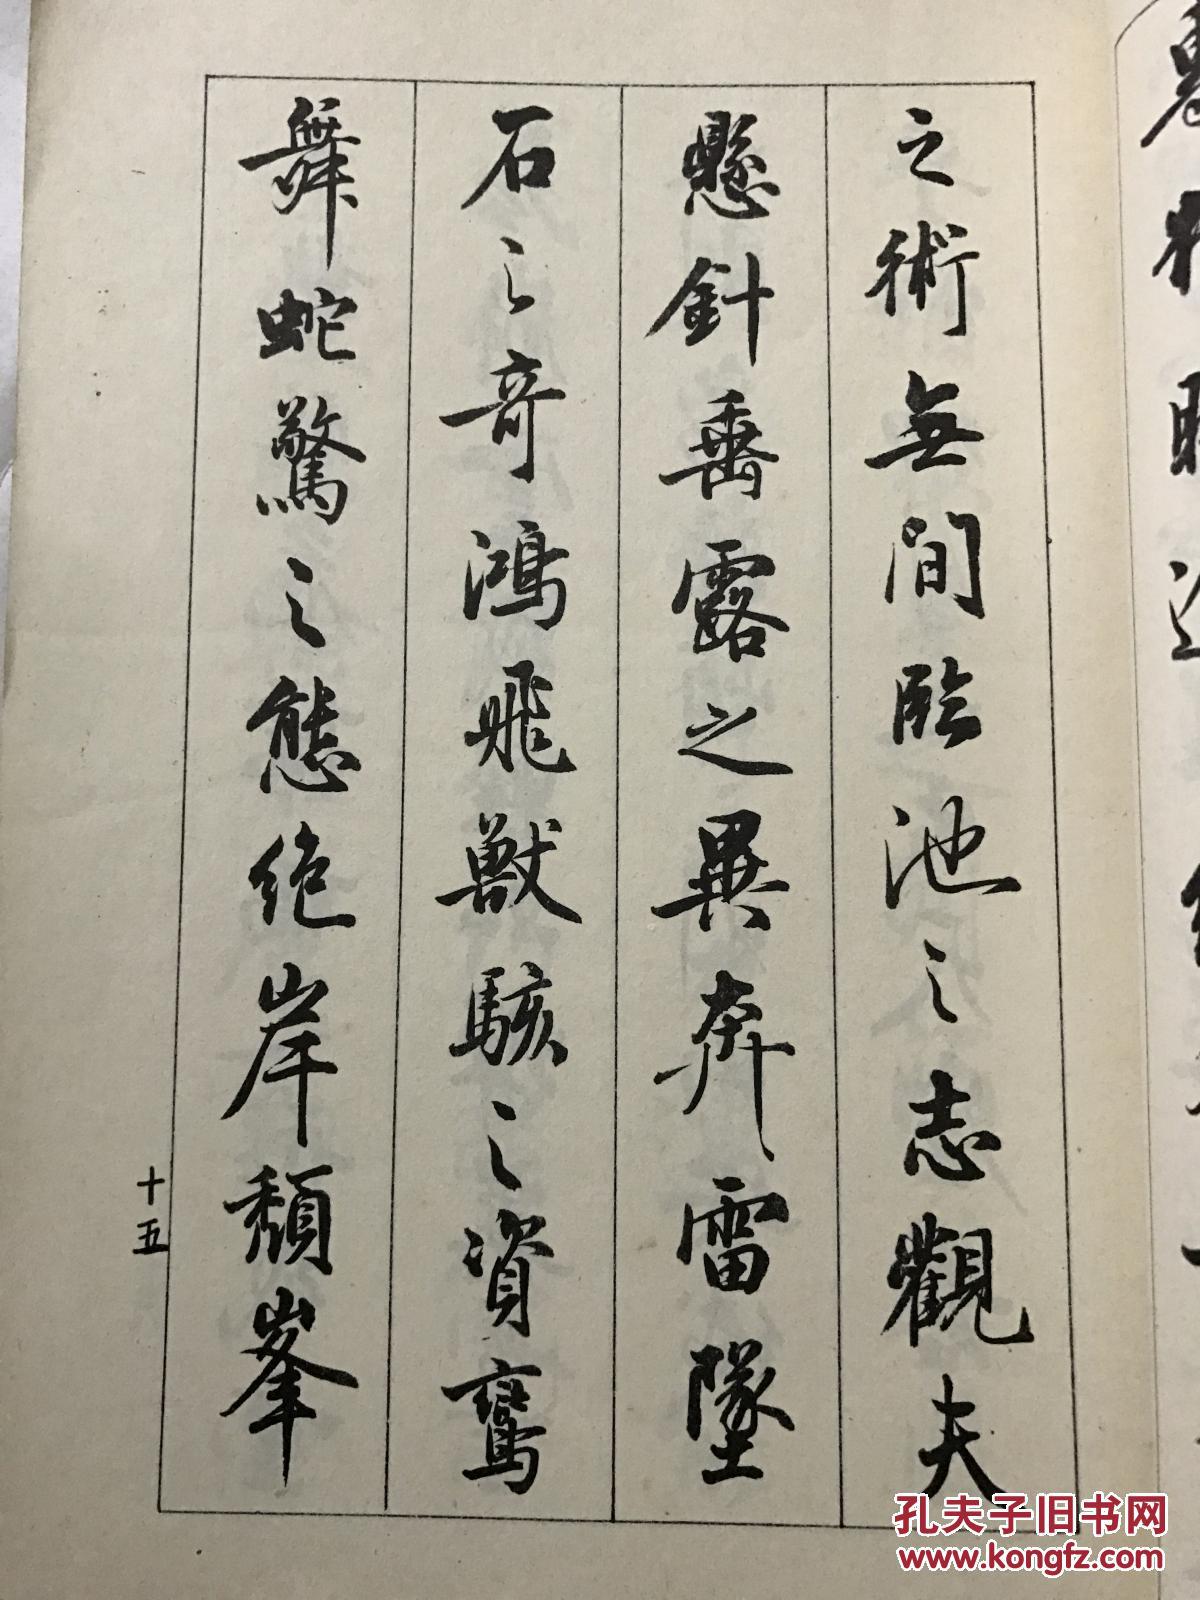 之術無間臨池之志觀夫
懸針垂露之異奔雷墜
石之奇鴻飛獸駭之資鸞
舞蛇驚之態絕岸頹峯
十五
孔夫子旧书网
www.kongfz.com